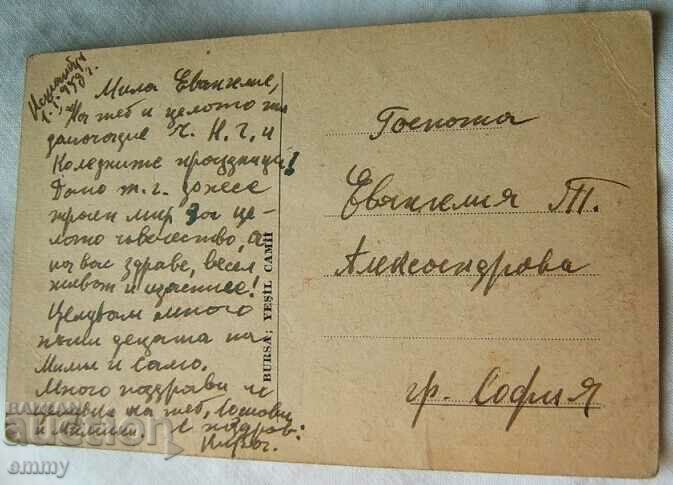 Истанбул
1.I.948 г.
Мила Евангелие,
На теб и целото ти
домочадие Ч. Н. Г. и
Коледните празници!
Дано т. г. донесе
траен мир за це-
лото човечество, а
на вас здраве, весел
живот и щастие!
Целувам много
пъти децата на
Мими и Само.
Много поздрави
на теб,
и
поздрав:
BURSA; YEŞİL CAMİİ
Госпожа
Евангелия Т.
Александрова
гр. София
auction
emmy